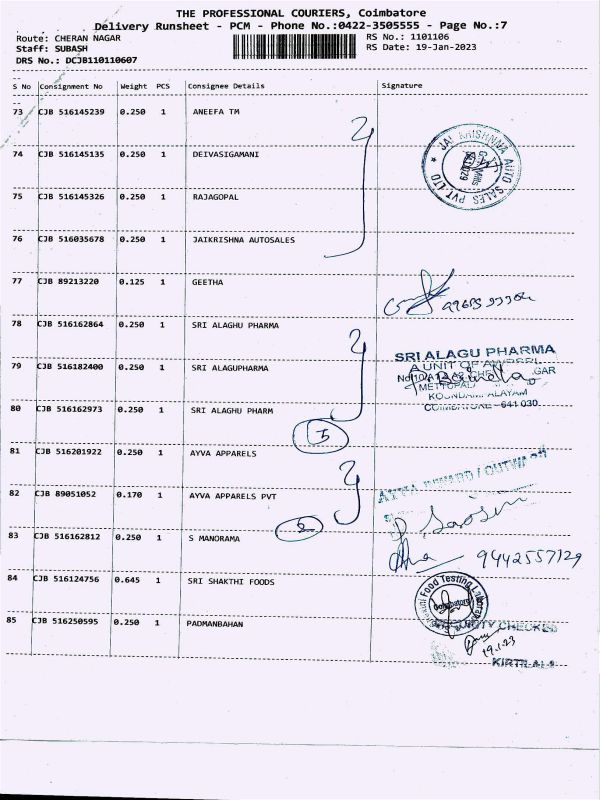 THE PROFESSIONAL COURIERS, Coimbatore
Delivery Runsheet - PCM - Phone No.:0422-3505555 - Page No.:7
Route: CHERAN NAGAR RS No.: 1101106
Staff: SUBASH RS Date: 19-Jan-2023
DRS No.: DCJB110110607
S No Consignment No Weight PCS Consignee Details Signature
73 CJB 516145239 0.250 1 ANEEFA TM
74 CJB 516145135 0.250 1 DEIVASIGAMANI
75 CJB 516145326 0.250 1 RAJAGOPAL
76 CJB 516035678 0.250 1 JAIKRISHNA AUTOSALES
JAI KRISHNNA AUTO SALES PVT. LTD
77 CJB 89213220 0.125 1 GEETHA
78 CJB 516162864 0.250 1 SRI ALAGHU PHARMA
79 CJB 516182400 0.250 1 SRI ALAGUPHARMA
SRI ALAGU PHARMA
A UNIT OF
METTUPAL
KOUNDAM ALAYAM
COIMBATORE - 641 030
80 CJB 516162973 0.250 1 SRI ALAGHU PHARM
5
81 CJB 516201922 0.250 1 AYVA APPARELS
AYVA INWARD / OUTWARD
82 CJB 89051052 0.170 1 AYVA APPARELS PVT
2
83 CJB 516162812 0.250 1 S MANORAMA
9442557129
84 CJB 516124756 0.645 1 SRI SHAKTHI FOODS
Food Testing
Coimbatore
85 CJB 516250595 0.250 1 PADMANBAHAN
CHECKED
19.1.23